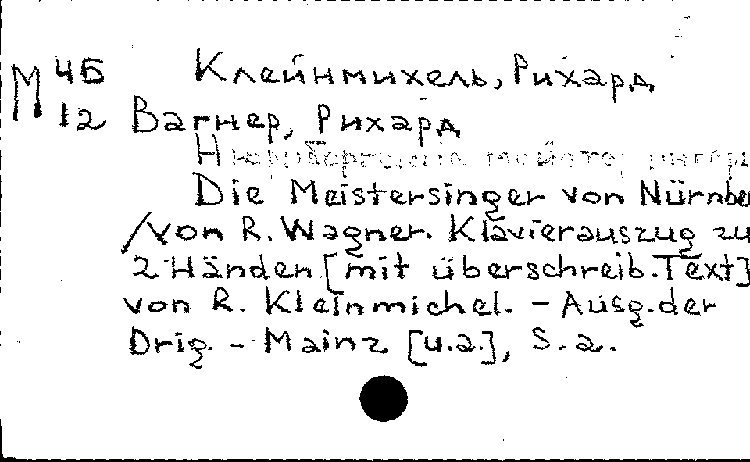 М 45 Клейнмихель, Рихард
12 Вагнер, Рихард
Die Meistersinger von Nürnbe
/von R. Wagner. Klavierauszug zu
2 Händen [mit überschreib. Text]
von R. Kleinmichel. – Ausg. der
Orig. – Mainz [u.a.], S.a.